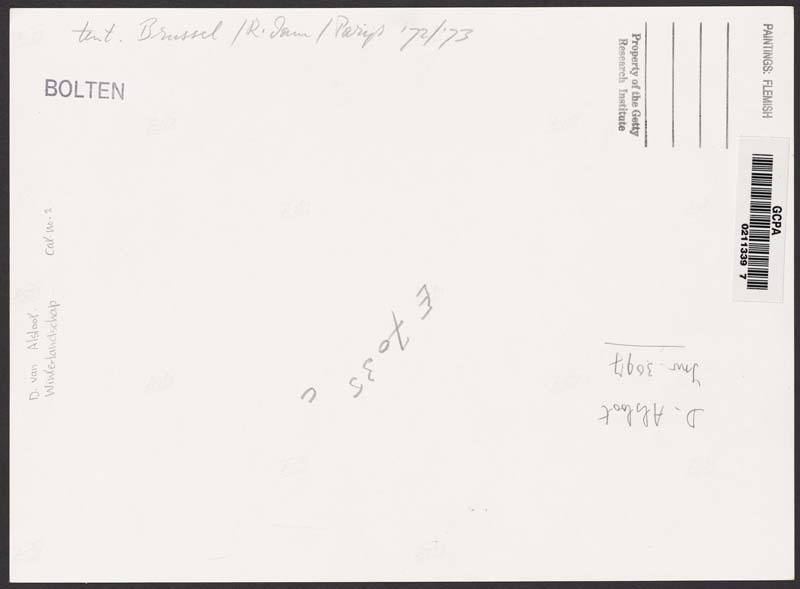 tent. Brussel / R.dam / Parijs '72/'73
BOLTEN
PAINTINGS: FLEMISH
Property of the Getty
Research Institute
GCPA
0211339 7
D. van Alsloot.
Winterlandschap Cat no. 2
E 7035 C
D. Alsloot
Inv. 30917